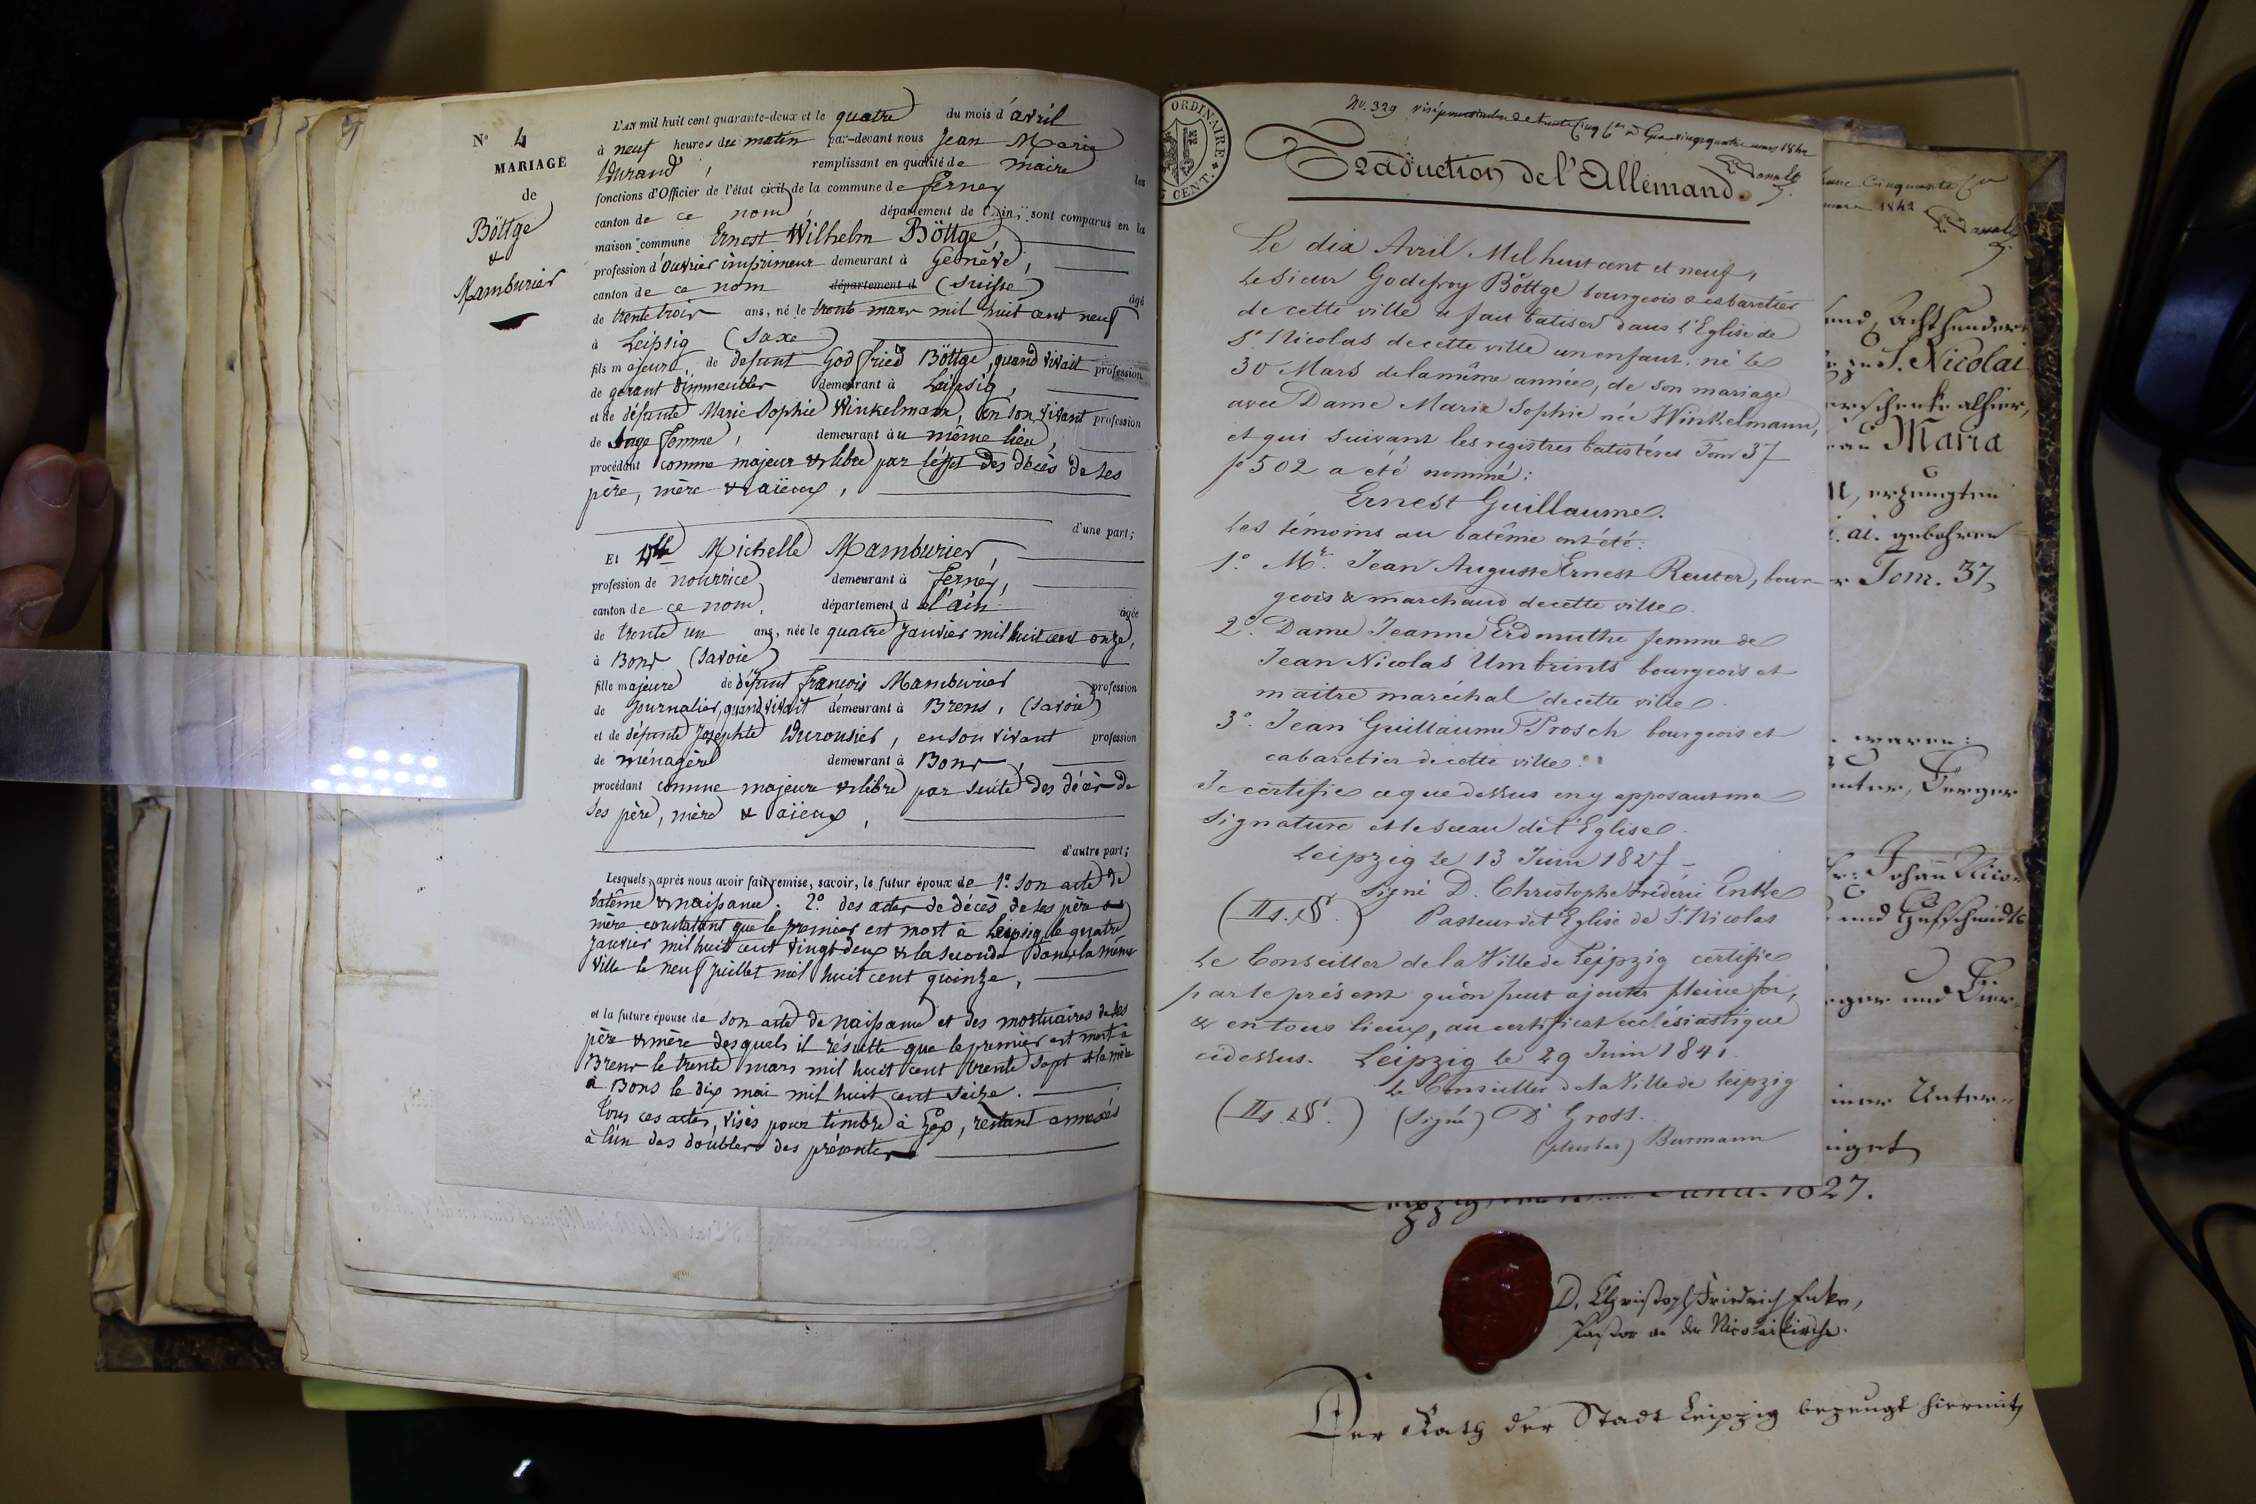 N° 4
MARIAGE
de
Böttge
&
Mamburier
L'AN mil huit cent quarante-deux et le quatre du mois d'avril
à neuf heures du matin par-devant nous Jean Marie
Durand, remplissant en qualité de maire les
fonctions d'Officier de l'état civil de la commune de Ferney
canton de ce nom département de l'Ain, sont comparus en la
maison commune Ernest Wilhelm Böttge,
profession d'ouvrier imprimeur demeurant à Genève,
canton de ce nom département d (Suisse) âgé
de trente trois ans, né le trente mars mil huit cent neuf
à Leipsig (Saxe)
fils majeur de defunt Godfried Böttge, quand vivait profession
de gérant d'immeubles demeurant à Leipsig,
et de défunte Marie Sophie Winkelmann, en son vivant profession
de sage femme, demeurant au même lieu,
procédant comme majeur & libre par l'effet des décès de ses
père, mère & aïeux,
d'une part;
Et Dlle Michelle Mamburier,
profession de nourrice demeurant à Ferney,
canton de ce nom, département de l'ain âgée
de trente un ans, née le quatre Janvier mil huit cent onze,
à Bons (Savoie)
fille majeure de défunt François Mamburier profession
de Journalier, quand vivait demeurant à Brens, (Savoie)
et de défunte Josephte Durousier, en son vivant profession
de ménagère demeurant à Bons,
procédant comme majeure & libre par suite des décès de
ses père, mère & aïeux,
d'autre part;
Lesquels, après nous avoir fait remise, savoir, le futur époux de 1° son acte de
batême & naissance. 2° des actes de décès de ses père et
mère constatant que le premier est mort à Leipsig le quatre
Janvier mil huit cent vingt deux & la seconde dans la même
ville le neuf juillet mil huit cent quinze,
et la future épouse de son acte de naissance et des mortuaires de ses
père & mère desquels il résulte que le premier est mort à
Brens le trente mars mil huit cent trente sept & la mère
à Bons le dix mai mil huit cent seize.
Tous ces actes, visés pour timbre à Gex, restant annexés
à l'un des doubles des présentes
ORDINAIRE
CENT.
N°. 329 visé pour timbre de trente cinq mars 1842
Traduction de l'Allemand.
Le dix Avril Mil huit cent et neuf,
le sieur Godefroy Böttge bourgeois & cabaretier
de cette ville a fait batiser dans l'Eglise de
St Nicolas de cette ville un enfant né le
30 Mars de la même année, de son mariage
avec Dame Marie Sophie née Winkelmann,
et qui suivant les registres batistères Tom 37
fo 502 a été nommé:
Ernest Guillaume.
Les témoins au batême ont été:
1°. Mr. Jean Auguste Ernest Reuter, bour-
geois & marchand de cette ville.
2°. Dame Jeanne Erdmuthe femme de
Jean Nicolas Umbreits bourgeois et
maitre maréchal de cette ville.
3°. Jean Guillaume Prosch bourgeois et
cabaretier de cette ville.
Je certifie ce que dessus en y apposant ma
signature et le sceau de l'Eglise.
Leipzig le 13 Juin 1827
signé D. Christophe Frédéric Enke
Pasteur de l'Eglise de St Nicolas
Le Conseiller de la Ville de Leipzig certifie
par le présent qu'on peut ajouter pleine foi,
& en tous lieux, au certificat ecclésiastique
ci dessus. Leipzig le 29 Juin 1841.
le Conseiller de la Ville de Leipzig
(signé) Dr Gross.
(plus bas) Burmann
cinquante
mars 1842
end, acht hundert
zu S. Nicolai
schenke allhier,
Maria
erzeugten
gebohren
Tom. 37,
waren:
Johann Nico
und Hufschmidts
und Bier
Unter
1827.
D. Christoph Friedrich Enke,
Pastor an der Nicolaikirche.
Der Rath der Stadt Leipzig bezeugt hiermit,